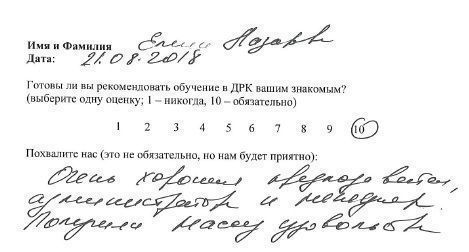 Имя и Фамилия Елена Назарв
Дата: 21.08.2018
Готовы ли вы рекомендовать обучение в ДРК вашим знакомым?
(выберите одну оценку; 1 – никогда, 10 – обязательно)
1 2 3 4 5 6 7 8 9 10
Похвалите нас (это не обязательно, но нам будет приятно):
Очень хорошия
администратор и менеджер.
Получили массу удовольств